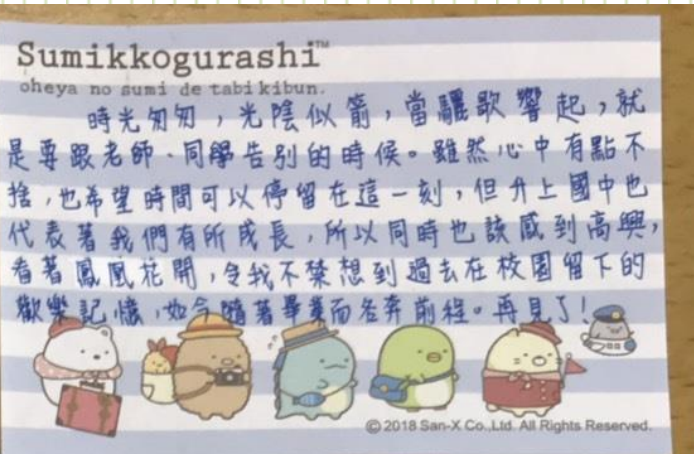 Sumikkogurashi™
oheya no sumi de tabikibun.
時光匆匆，光陰似箭，當驪歌響起，就
是要跟老師、同學告別的時候。雖然心中有點不
捨，也希望時間可以停留在這一刻，但升上國中也
代表著我們有所成長，所以同時也該感到高興，
看著鳳凰花開，令我不禁想到過去在校園留下的
歡樂記憶，如今隨著畢業而各奔前程。再見了！
© 2018 San-X Co.,Ltd. All Rights Reserved.